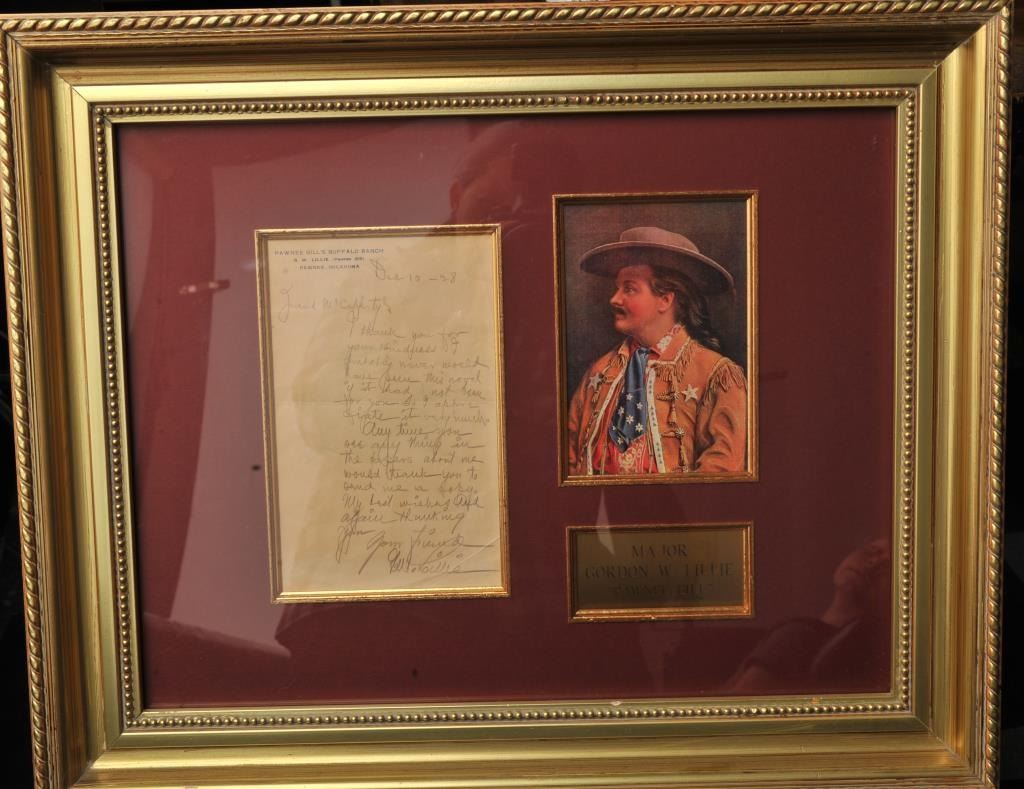 PAWNEE BILL'S BUFFALO RANCH
G. W. LILLIE (PAWNEE BILL)
PAWNEE, OKLAHOMA
Dec 15 - 28
Friend McCafferty
I thank you for
your kindness I
probably never would
have seen this novel
if it had not been
for you so I appre
ciate it very much.
Any time you
see any thing in
the papers about me
would thank you to
send me a copy.
My best wishes and
again thanking
you Your Friend
GW Lillie
MAJOR
GORDON W. LILLIE
"PAWNEE BILL"